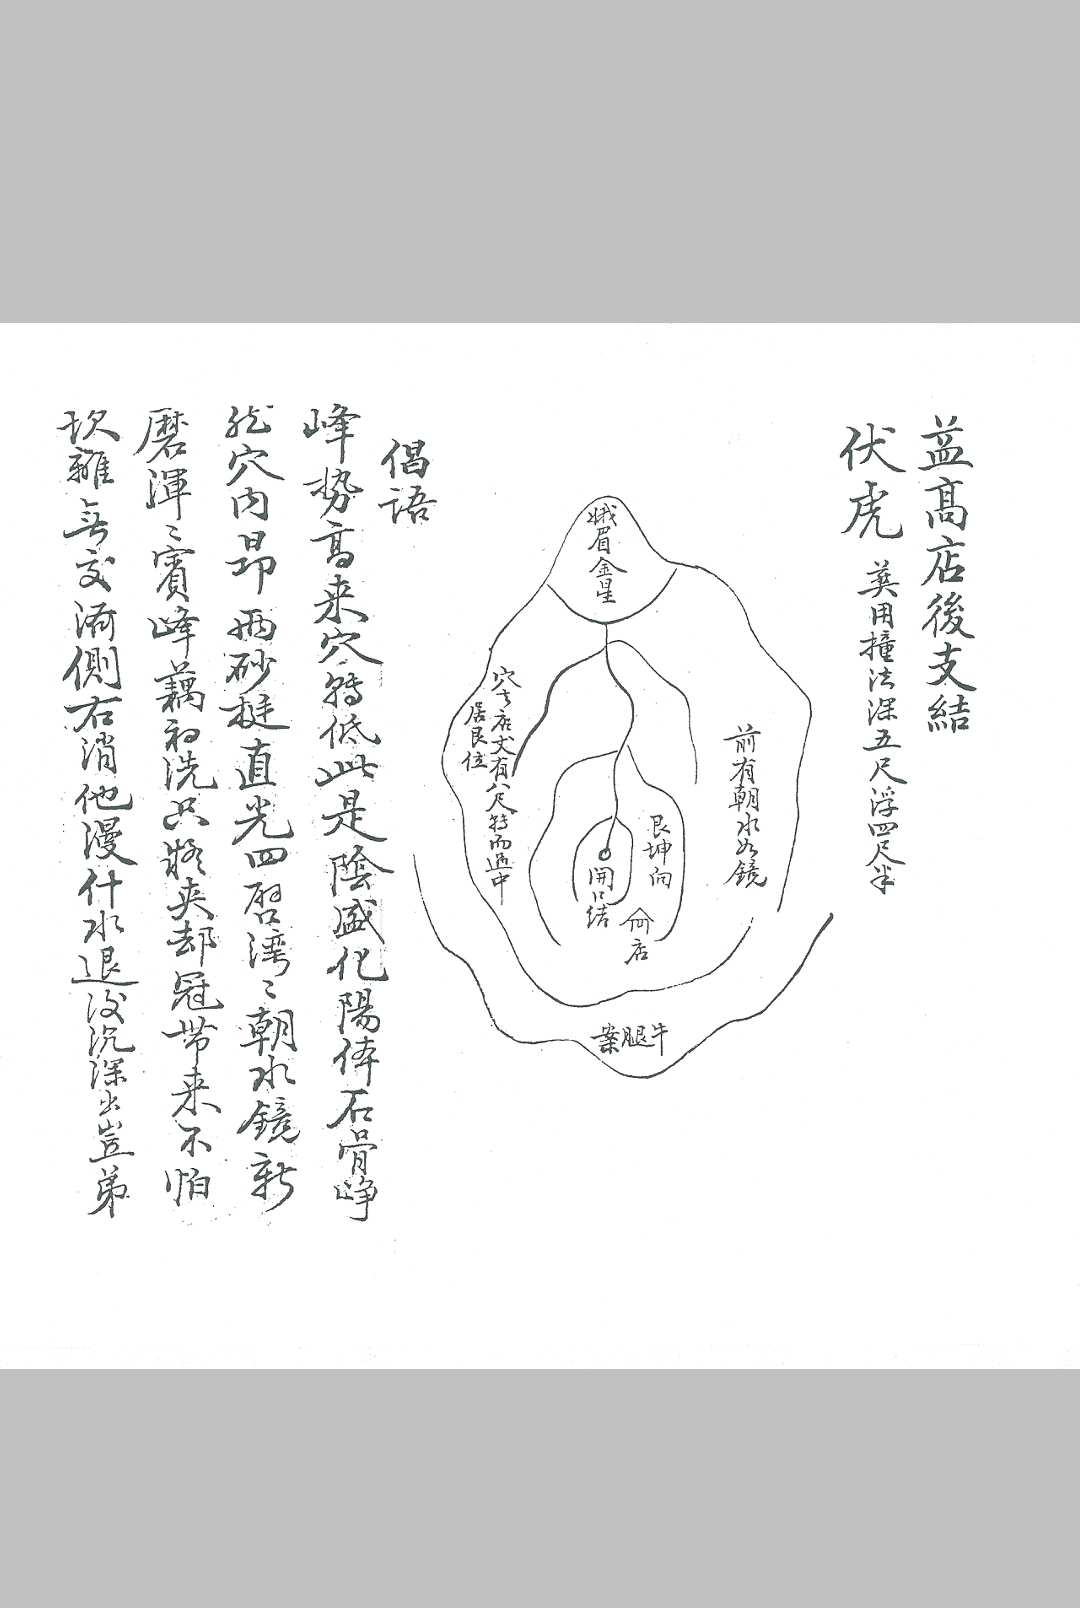 盖高店後支結
伏虎
葬用撞法深五尺浮四尺半
前有朝水如鏡
艮坤向
娥眉金星
開口結
店
牛腿案
穴去店丈有八尺特而適中
居艮位
倡语
峰势高来穴転低此是陰盛化陽体石骨峥
然穴内昂両砂挺直光四唇湾〻朝水鏡新
磨渾〻賓峰藕初洗只将夾却冠带来不怕
坎離無交済側右消他漫什水退没沉深出豈弟